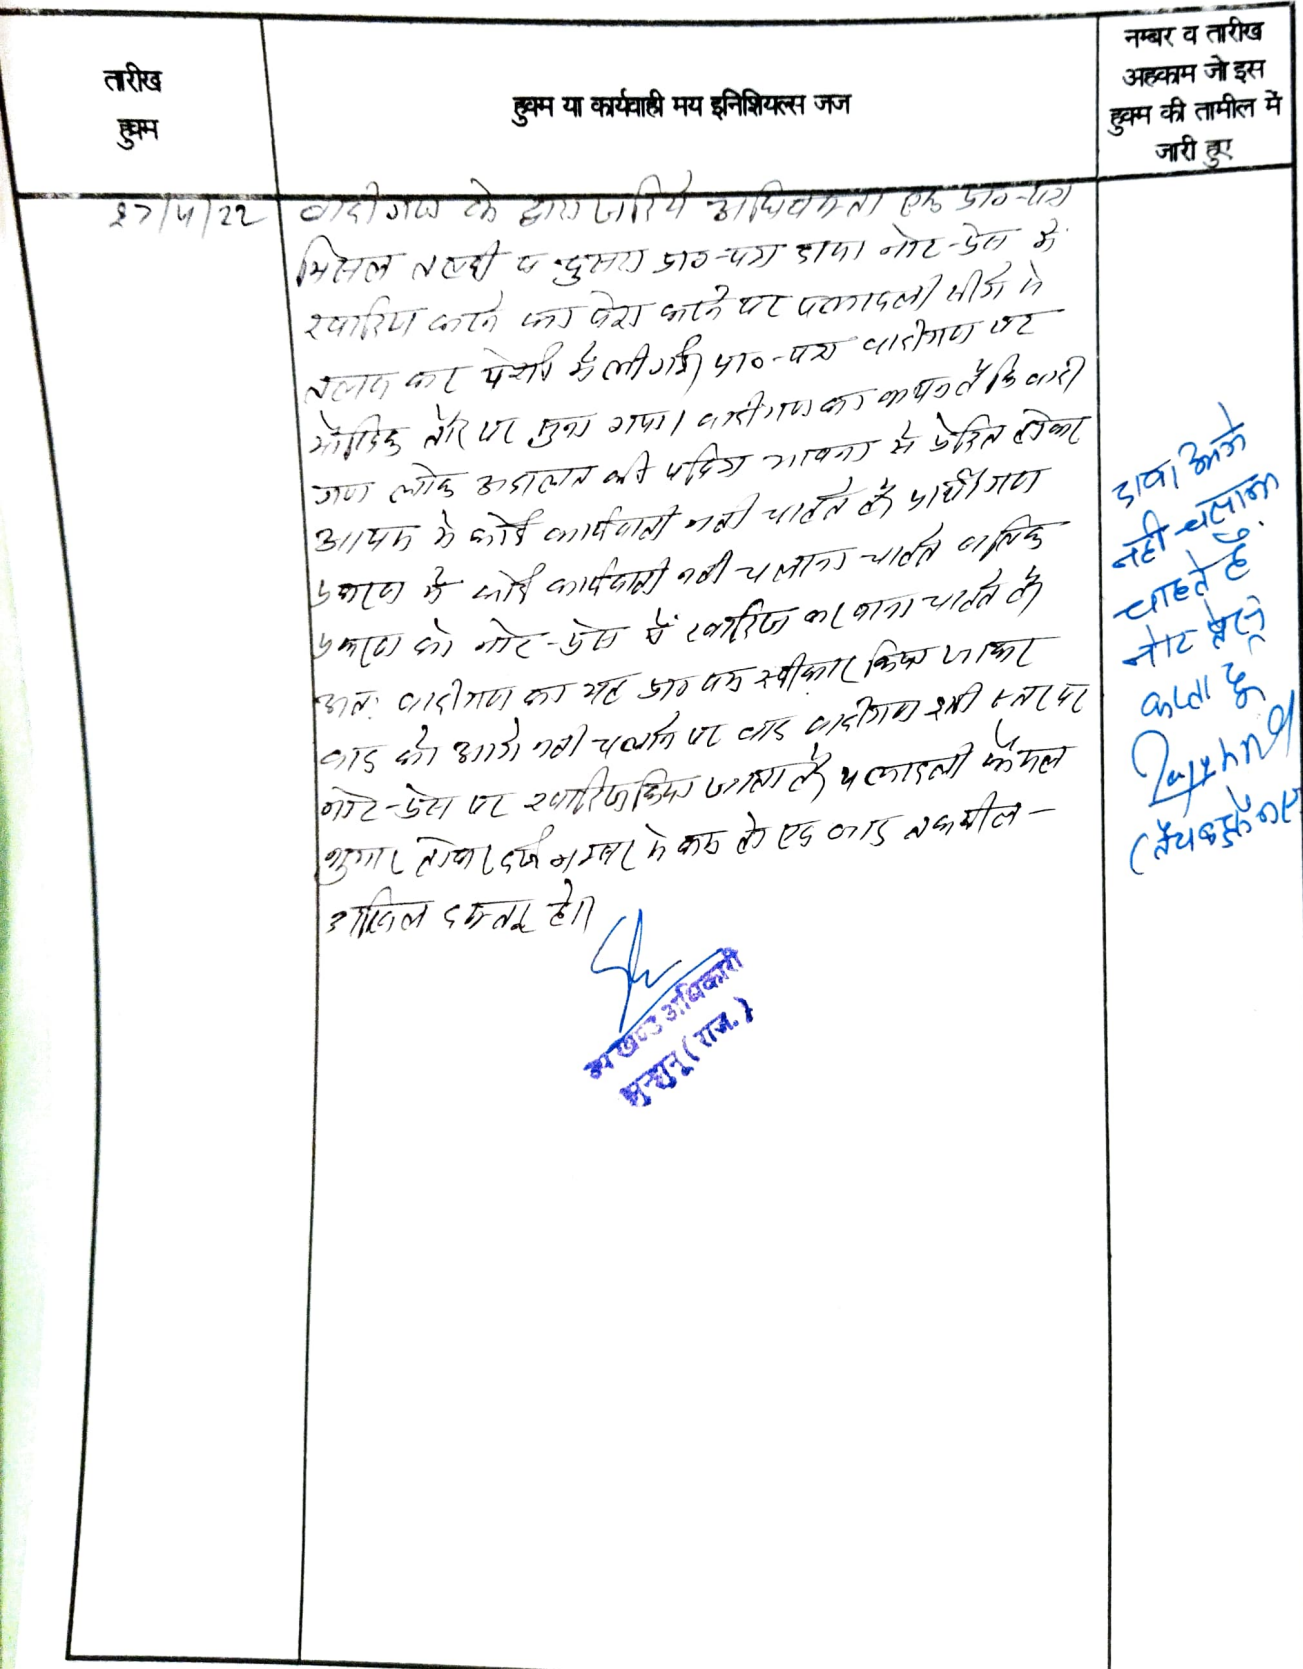 तारीख
हुक्म
हुक्म या कार्यवाही मय इनिशियल्स जज
नम्बर व तारीख
अहकाम जो इस
हुक्म की तामील में
जारी हुए
27/4/22
वादीगण के द्वारा जरिये अधिवक्ता एक प्रा०-पत्र
मिसल तलबी व दुसरा प्रा०-पत्र दावा नोट-प्रेस में
खारिज करने का पेश करने पर पत्रावली सीगे से
तलब कर पेशी में ली गई। प्रा०-पत्र वादीगण पर
मौखिक तौर पर सुना गया। वादीगण का कथन है कि वादी
गण लोक अदालत की पवित्र भावना से प्रेरित होकर
आपस में कोई कार्यवाही नही चाहते है प्रार्थीगण
प्रकरण में कोई कार्यवाही नही चलाना चाहते बल्कि
प्रकरण को नोट-प्रेस में खारिज करवाना चाहते है
अतः वादीगण का यह प्रा० पत्र स्वीकार किया जाकर
वाद को आगे नही चलाने पर वाद वादीगण इसी स्तर पर
नोट-प्रेस पर खारिज किया जाता है पत्रावली फैसल
शुमार होकर दर्ज नम्बर से कम हो एवं वाद तकमील
दाखिल दफ्तर हो।
उपखण्ड अधिकारी
झुन्झुनू (राज.)
दावा आगे
नही चलाना
चाहते है
नोट प्रेस
करता हूँ